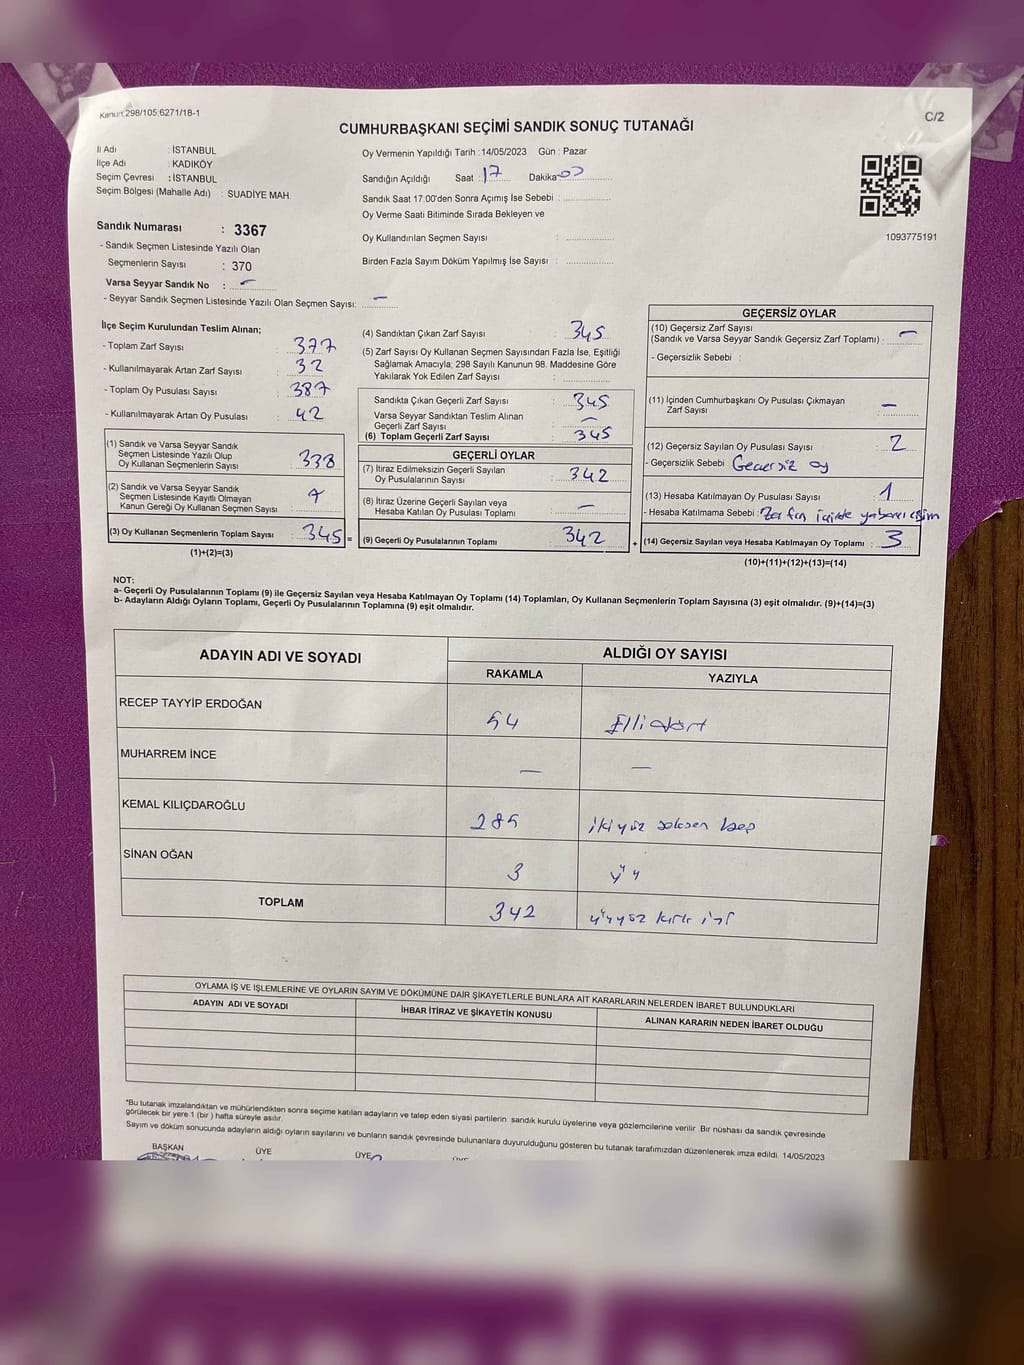 Kanun:298/105;6271/18-1
C/2
CUMHURBAŞKANI SEÇİMİ SANDIK SONUÇ TUTANAĞI
İl Adı : İSTANBUL
İlçe Adı : KADIKÖY
Seçim Çevresi : İSTANBUL
Seçim Bölgesi (Mahalle Adı) : SUADİYE MAH.
Sandık Numarası : 3367
- Sandık Seçmen Listesinde Yazılı Olan
Seçmenlerin Sayısı : 370
Varsa Seyyar Sandık No : -
- Seyyar Sandık Seçmen Listesinde Yazılı Olan Seçmen Sayısı: -
Oy Vermenin Yapıldığı Tarih : 14/05/2023 Gün : Pazar
Sandığın Açıldığı Saat : 17 Dakika 00
Sandık Saat 17.00'den Sonra Açımış İse Sebebi :
Oy Verme Saati Bitiminde Sırada Bekleyen ve
Oy Kullandırılan Seçmen Sayısı :
Birden Fazla Sayım Döküm Yapılmış İse Sayısı :
1093775191
İlçe Seçim Kurulundan Teslim Alınan;
- Toplam Zarf Sayısı : 377
- Kullanılmayarak Artan Zarf Sayısı : 32
- Toplam Oy Pusulası Sayısı : 387
- Kullanılmayarak Artan Oy Pusulası : 42
(1) Sandık ve Varsa Seyyar Sandık
Seçmen Listesinde Yazılı Olup
Oy Kullanan Seçmenlerin Sayısı : 338
(2) Sandık ve Varsa Seyyar Sandık
Seçmen Listesinde Kayıtlı Olmayan
Kanun Gereği Oy Kullanan Seçmen Sayısı : 7
(3) Oy Kullanan Seçmenlerin Toplam Sayısı : 345 =
(1)+(2)=(3)
(4) Sandıktan Çıkan Zarf Sayısı : 345
(5) Zarf Sayısı Oy Kullanan Seçmen Sayısından Fazla İse, Eşitliği
Sağlamak Amacıyla; 298 Sayılı Kanunun 98. Maddesine Göre
Yakılarak Yok Edilen Zarf Sayısı :
Sandıkta Çıkan Geçerli Zarf Sayısı : 345
Varsa Seyyar Sandıktan Teslim Alınan
Geçerli Zarf Sayısı : -
(6) Toplam Geçerli Zarf Sayısı : 345
GEÇERLİ OYLAR
(7) İtiraz Edilmeksizin Geçerli Sayılan
Oy Pusulalarının Sayısı : 342
(8) İtiraz Üzerine Geçerli Sayılan veya
Hesaba Katılan Oy Pusulası Toplamı : -
(9) Geçerli Oy Pusulalarının Toplamı : 342 +
GEÇERSİZ OYLAR
(10) Geçersiz Zarf Sayısı
(Sandık ve Varsa Seyyar Sandık Geçersiz Zarf Toplamı) : -
- Geçersizlik Sebebi :
(11) İçinden Cumhurbaşkanı Oy Pusulası Çıkmayan
Zarf Sayısı : -
(12) Geçersiz Sayılan Oy Pusulası Sayısı : 2
- Geçersizlik Sebebi Geçersiz oy
(13) Hesaba Katılmayan Oy Pusulası Sayısı : 1
- Hesaba Katılmama Sebebi : Zarfın içinde yabancı cisim
(14) Geçersiz Sayılan veya Hesaba Katılmayan Oy Toplamı : 3
(10)+(11)+(12)+(13)=(14)
NOT:
a- Geçerli Oy Pusulalarının Toplamı (9) ile Geçersiz Sayılan veya Hesaba Katılmayan Oy Toplamı (14) Toplamları, Oy Kullanan Seçmenlerin Toplam Sayısına (3) eşit olmalıdır. (9)+(14)=(3)
b- Adayların Aldığı Oyların Toplamı, Geçerli Oy Pusulalarının Toplamına (9) eşit olmalıdır.
ADAYIN ADI VE SOYADI ALDIĞI OY SAYISI
RAKAMLA YAZIYLA
RECEP TAYYİP ERDOĞAN 54 Elli dört
MUHARREM İNCE - -
KEMAL KILIÇDAROĞLU 285 ikiyüz seksen beş
SİNAN OĞAN 3 üç
TOPLAM 342 üçyüz kırk iki
OYLAMA İŞ VE İŞLEMLERİNE VE OYLARIN SAYIM VE DÖKÜMÜNE DAİR ŞİKAYETLERLE BUNLARA AİT KARARLARIN NELERDEN İBARET BULUNDUKLARI
ADAYIN ADI VE SOYADI İHBAR İTİRAZ VE ŞİKAYETİN KONUSU ALINAN KARARIN NEDEN İBARET OLDUĞU
*Bu tutanak imzalandıktan ve mühürlendikten sonra seçime katılan adayların ve talep eden siyasi partilerin sandık kurulu üyelerine veya gözlemcilerine verilir. Bir nüshası da sandık çevresinde
görülecek bir yere 1 (bir) hafta süreyle asılır.
Sayım ve döküm sonucunda adayların aldığı oyların sayılarını ve bunların sandık çevresinde bulunanlara duyurulduğunu gösteren bu tutanak tarafımızdan düzenlenerek imza edildi. 14/05/2023
BAŞKAN ÜYE ÜYE ÜYE